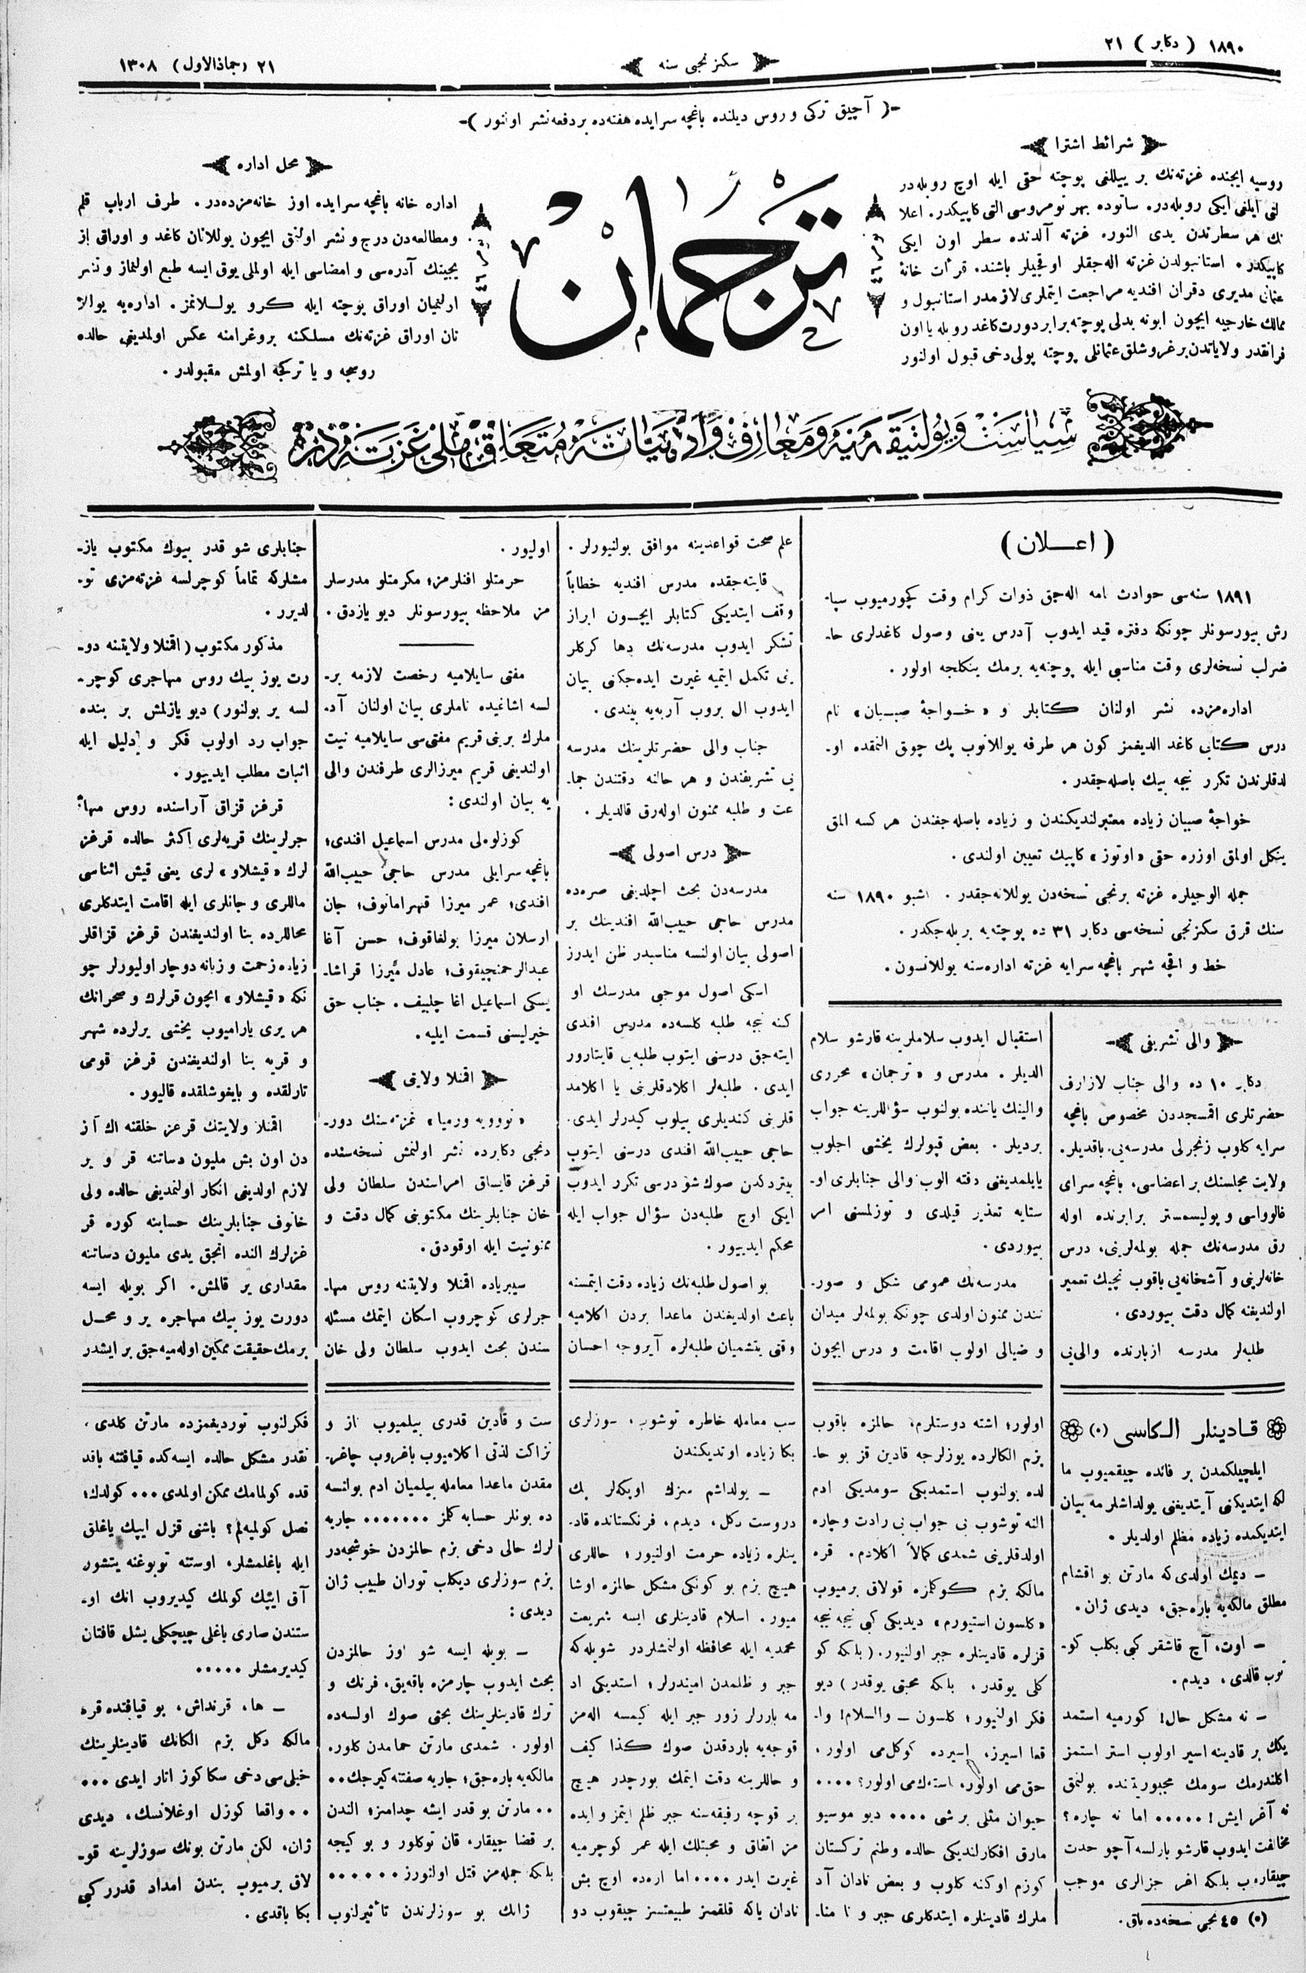 ١٨٩٠ ( دكابر ) ٢١
سكز نجى سنه
٢١ (جماذالاول) ١٣٠٨
-( آچيق تركى و روس ديلنده باغچه سرايده هفته ده بر دفعه نشر اولنور )-
شرائط اشترا
روسيه ايچنده غزته نك بر ييللغى پوچته حقى ايله اوچ روبله در
لتى ايلغى ايكى روبله در. ساتوده بهر نومروسى التى كاپيكدر. اعلا
نك هر سطرندن يدى النور. غزته آلدنده سطر اون ايكى
كاپيكدر. استانبولدن غزته اله جقلر اوقجيلر باشنده قرأت خانۀ
عثمانى مديرى افنديه مراجعت ايتملرى لازمدر استانبول و
ممالك خارجيه ايچون ابونه بدلى پوچته برابر دورت كاغد روبله يا اون
فرانقدر ولاياتدن بر غروشلق عثمانلى پوچته پولى دخى قبول اولنور
ترجمان
نومرو ٤٦
نومرو ٤٦
محل اداره
اداره خانه باغچه سرايده اوز خانه مزده در. طرف ارباب قلم
ومطالعه دن درج و نشر اولنق ايچون يوللانان كاغد و اوراق از
يجينك آدره سى و امضاسى ايله اولملى يوق ايسه طبع اولنماز و نشر
اولنميان اوراق پوچته ايله كرو يوللانمز. اداره يه يوللا
نان اوراق غزته نك مسلكنه پروغرامنه عكس اولمديغى حالده
روسجه و يا تركجه اولمش مقبولدر.
سياست و پوليتيقه يه و معارف و ادبياته متعلق ملى غزته در
(اعــلان)
١٨٩١ سنه سى حوادث نامه اله جق ذوات كرام وقت كچورميوب سپا-
رش بيورسونلر چونكه دفتره قيد ايدوب آدرس يعنى وصول كاغدلرى حا-
ضرلب نسخه لرى وقت مناسى ايله پوچته يه برمك ينكلجه اولور.
اداره مزده نشر اولنان كتابلر و «خــواجۀ صبيــان» نام
درس كتابى كاغد الديغمز كون هر طرفه يوللانوب پك چوق النمقده او-
لدقلرندن تكرر نيجه بيك باصله جقدر.
خواجۀ صبيان زياده معتبرلنديكندن و زياده باصله جغندن هر كسه المق
ينكل اولمق اوزره حقى «اوتوز» كاپيك تعيين اولندى.
جمله الوجيلره غزته برنجى نسخه دن يوللانه جقدر. اشبو ١٨٩٠ سنه
سنك قرق سكزنجى نسخه سى دكابر ٣١ ده پوچته يه بريله جكدر.
خط و اقچه شهر باغچه سرايه غزته اداره سنه يوللانسون.
والى تشريفى
دكابر ١٠ ده والى جناب لازارف
حضرتلرى اقمسجددن مخصوص باغچه
سرايه كلوب زنجرلى مدرسه يى باقديلر.
ولايت مجلسنك بر اعضاسى، باغچه سراى
غالوواسى و پوليسمستر برابرنده اوله
رق مدرسه نك جمله بولمه لرينى، درس
خانه لرينى و آشخانه يى باقوب نجيك تعمير
اولنديغنه كمال دقت بيوردى.
طلبه لر مدرسه ازبارنده والى يى
استقبال ايدوب سلاملرينه قارشو سلام
الديلر. مدرس و «ترجمان» محررى
والينك ياننده بولنوب سؤاللرينه جواب
برديلر. بعض قپولرك يخشى اچلوب
ياپلمديغنى دقته الوب والى جنابلرى او-
ستايه تعذير قيلدى و توزلمسنى امر
بيوردى.
مدرسه نك همومى شكل و صور-
تندن ممنون اولدى چونكه بولمه لر ميدان
و ضيالى اولوب اقامت و درس ايچون
علم صحت قواعدينه موافق بولنيورلر.
قايته جقده مدرس افنديه خطاباً
وقف ايتديكى كتابلر ايچــون ابراز
تشكر ايدوب مدرسه نك دها كركلر
ينى تكمل ايتميه غيرت ايده جكنى بيان
ايدوب ال بروب آربه يه بيندى.
جناب والى حضرتلرينك مدرسه
يى تشريفندن و هر حالنه دقتندن جما-
عت و طلبه ممنون اوله رق قالديلر.
درس اصولى
مدرسه دن بحث اچلديغى صره ده
مدرس حاجى حبيب الله افندينك بر
اصولى بيان اولنسه مناسبدر ظن ايدرز
اسكى اصول موجى مدرسك او
كنه نيجه طلبه كلسه ده مدرس افندى
ايته جق درسنى ايتوب طلبه يى قايتارور
ايدى. طلبه لر اكلادقلرينى يا اكلامد
قلرينى كنديلرى بيلوب كيدرلر ايدى.
حاجى حبيب الله افندى درسنى ايتوب
بيتردكدن صوك شو درسى تكرر ايدوب
ايكى اوچ طلبه دن سؤال جواب ايله
محكم ايدييور.
بو اصول طلبه نك زياده دقت ايتمسنه
باعث اولديغندن ماعدا بردن اكلاميه
وقتى يتشميان طلبه لره آيروجه احسان
اوليور.
حرمتلو افنلرمز؛ مكرمتلو مدرسلر
مز ملاحظه بيورسونلر ديو يازدق.
مفتى سايلاميه رخصت لازمه بر-
لسه اشاغيده ناملرى بيان اولنان آد-
ملرك برينى قريم مفتى سى سايلاميه نيت
اولنديغى قريم ميرزالرى طرفندن والى
يه بيان اولندى:
كوزلوه لى مدرس اسماعيل افندى؛
باغچه سرايلى مدرس حاجى حبيب الله
افندى؛ عمر ميرزا قنهرامانوف؛ جان
ارسلان ميرزا بولغاقوف؛ حسن آغا
عبدالرحمنچيقوف؛ عادل ميرزا قراشا-
يسكى اسماعيل اغا چلبيف. جناب حق
خيرليسنى قسمت ايليه.
اقنلا ولايتى
«نوويه ورميا» غزته سنك دور-
دنجى دكابرده نشر اولنمش نسخه سنده
قرغز قايساق امراسندن سلطان ولى
خان جنابلرينك مكتوبنى كمال دقت و
ممنونيت ايله اوقودق.
سيبرياده اقنلا ولايتنه روس مها-
جرلرى كوچروب اسكان ايتمك مسئله
سندن بحث ايدوب سلطان ولى خان
جنابلرى شو قدر بيوك مكتوب ياز-
مشلركه تماماً كوچرلسه غزته مزى تو-
لديرر.
مذكور مكتوب (اقنلا ولايتنه دو-
رت يوز بيك روس مهاجرى كوچر-
لسه ير بولنور) ديو يازلمش بر بنده
جواب رد اولوب فكر و دليل ايله
اثبات مطلب ايدييور.
قرغز قزاق آراسنده روس مها
جرلرينك قريه لرى اكثر حالده قرغز
لرك «قيشلاو» لرى يعنى قيش اثناسى
ماللرى و جانلرى ايله اقامت ايتدكلرى
محاللرده بنا اولنديغندن قرغز قزاقلر
زياده زحمت و زيانه دوچار اوليورلر چو
نكه «قيشلاو» ايچون قرلرك و صحرانك
هر يرى يارامیوب يخشى يرلرده شهر
و قريه بنا اولنديغندن قرغز قومى
تارلقده و بايغوشلقده قاليور.
اقنلا ولايتك قرغز خلقنه اك آز
دن اون بش مليون دساتنه قر و ير
لازم اولديغى انكار اولنمديغى حالده ولى
خانوف جنابلرينك حسابنه كوره قر
غزلرك النده انجق يدى مليون دساتنه
مقدارى ير قالمش. اكر بويله ايسه
دورت يوز بيك مهاجره ير و محــل
برمك حقيقت ممكن اوله ميه جق بر ايشدر
قادينلر الـكاسى (٥)
ايلچيلكمدن بر فائده چيقميوب ما
لكه ايتديكنى آيتديغنى يولداشلرمه بيان
ايتديكمده زياده مظلم اولديلر.
ـ ديمك اولدى كه مارتن بو اقشام
مطلق مالكه يه باره جق، ديدى ژان.
ـ اوت، آچ قاشقر كى بكلب كو-
توب قالدى، ديدم.
ـ نه مشكل حال! كورميه استمد
يكك بر قادينه اسير اولوب استر استمز
اكلندرمك سومك مجبورتنده بولنمق
نه آغر ايش! ..... اما نه چاره؟
مخالفت ايدوب قارشو بارلسه آچو حدت
چيقاروب بلكه اغر جزالرى موجب
(٥) ٤٥ نجى نسخه ده باق.
اولور؛ اشته دوستلرم، حالمزه باقوب
يزم الكالرده يوزلرجه قادين قز بو حا-
لده بولنوب استمديكى سومديكى ادم
النه توشوب نى جواب نى رادت و چاره
اولدقلرينى شمدى كمالاً اكلادم. قره
مالكه بزم كوكمزه قولاق برميوب
«كلسون استيورم» ديديكى كى نيجه نيجه
قزلره قادينلره جبر اولنيور. (بلكه كو
كلى يوقدر، بلكه محبتى يوقدر) ديو
فكر اولنيور؛ كلسون ـ والسلام! وا-
قعا اسيرز، اسيرده كوكل مى اولور.
حق مى اولور، استمك مى اولور؟....
حيوان مثلى بر شى .... ديو موسيو
مارق افكارلنديكى حالده وطنم تركستان
كوزم اوكنه كلوب و بعض نادان آد
ملرك قادينلره ايتدكلرى جبر و نا منا-
سب معامله خاطره توشوب، سوزلرى
بكا زياده اوتديكندن
ـ يولداشم سزك اويكه لر يك
دروست دكل، ديدم. فرنكستانده قاد-
ينلره زياده حرمت اولنيور؛ حاللرى
هيچ بزم بو كونكى مشكل حالمزه اوشا
ميور. اسلام قادينلرى ايسه شريعت
محمديه ايله محافظه اولنمشلردر شويله كه
جبر و ظلمدن اميندرلر؛ استديكى اد
مه بارلر زور جبر ايله كيمسه اله مز
قوجه يه باردقدن صوك كذا كيف
و حاللرينه دقت ايتمك بورچدر هيچ
بر قوجه رفيقه سنه جبر ظلم ايتمز و ايده
مز اتفاق و محبتلك ايله عمر كوچرميه
غيرت ايدر .... اما اره ده اوچ بش
نادان ياكه قلقمز طبيعتسز چيقوب دو
ست و قادين قدرى بيلميوب ناز و
نزاكت لذتى اكلاميوب باغروب چاغر-
مقدن ماعدا معامله بيلميان ادم بولنسه
ده بونلر حسابه كلمز ....... جاريه
لرك حالى دخى بزم حالمزدن خوشجه در
بزم سوزلرى ديكلب توران طبيب ژان
ديدى:
ـ بويله ايسه شو اوز حالمزدن
بحث ايدوب چارمزه باقه يق، فرنك و
ترك قادينلرينك بحثى صوك اولسه ده
اولور. شمدى مارتن حمامدن كلور.
مالكه يه باره جق؛ جاريه صفتنه كيرجك..
.. مارتن بو قدر ايشه چدامز؛ الندن
بر قضا چيقار، قان توكلور و بو كيجه
بلكه جمله مز قتل اولنورز ......
ژانك بو سوزلرندن تأثيرلنوب
فكرلنوب تورديغمزده مارتن كلدى.
نقدر مشكل حالده ايسه كده قيافتنه باقد
قده كولمامك ممكن اولمدى ... كولدك؛
نصل كولميه لم؟ باشنى قزل ايپك ياغلق
ايله باغلمشلر، اوستنه توبوغنه يتشور
آق ايپك كولمك كيديروب انك او-
ستندن صارى باغلى چيچكلى يشل قافتان
كيديرمشلر .....
ـ ها، قرنداش، بو قيافتنده قره
مالكه دكل بزم الكانك قادينلرينك
خيلى سى دخى سكا كوز اتار ايدى ...
.. واقعا كوزل اوغلانسك، ديدى
ژان، لكن مارتن بونك سوزلرينه قو-
لاق برميوب بندن امداد قدرر كى
بكا باقدى.